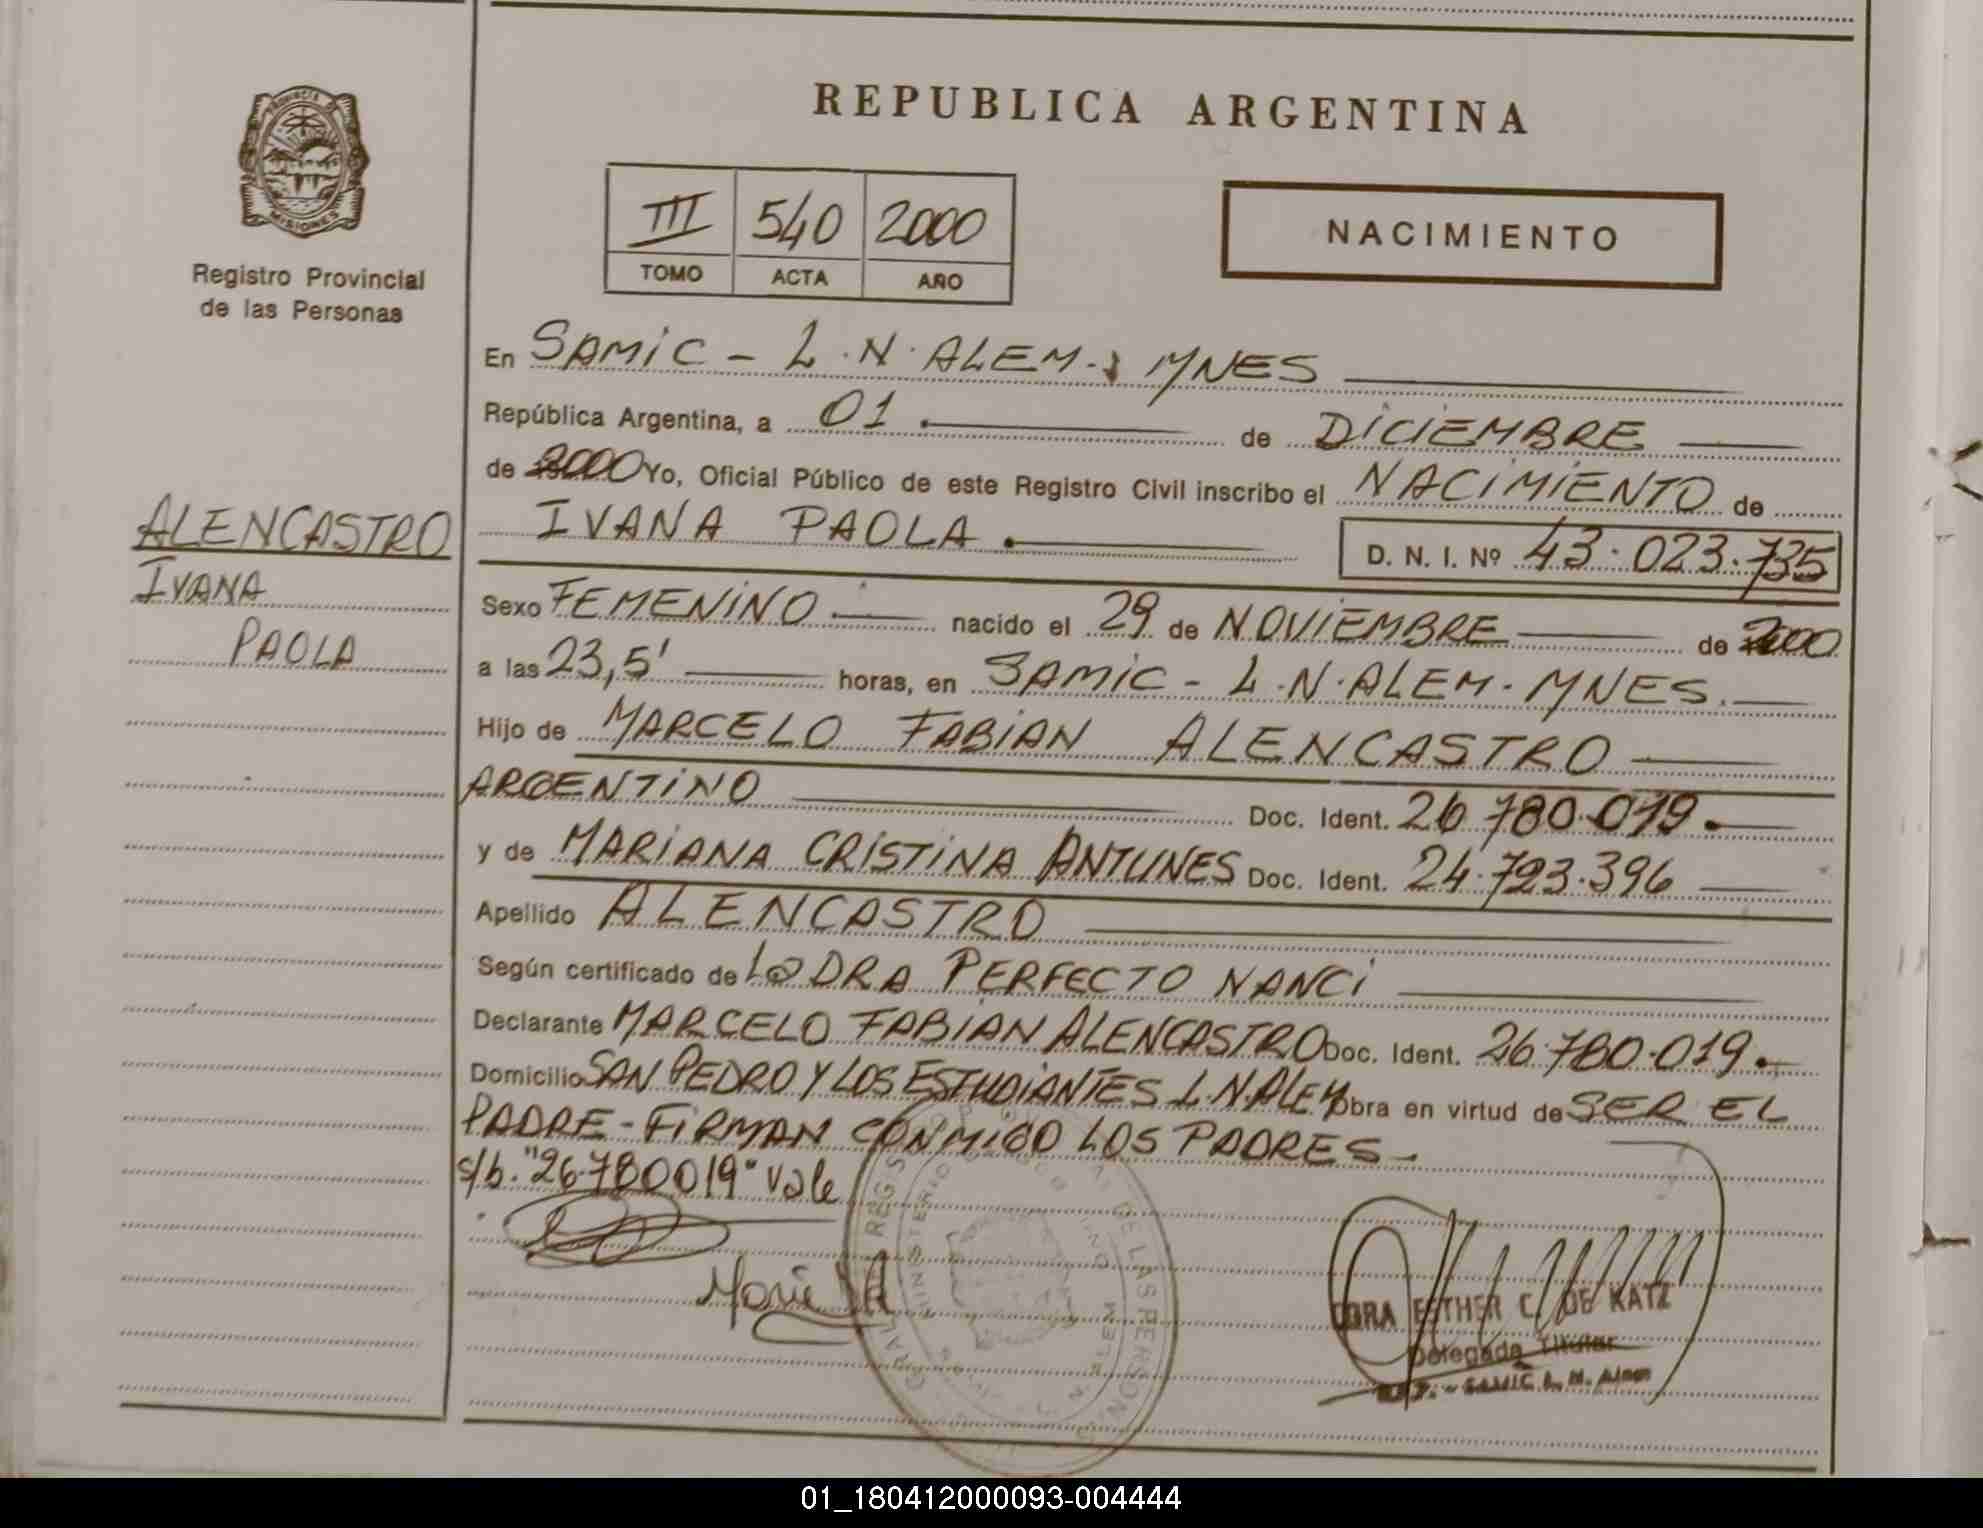 REPUBLICA ARGENTINA
PROVINCIA DE
MISIONES
Registro Provincial
de las Personas
III 540 2000
TOMO ACTA AÑO
NACIMIENTO
En SAMIC - L.N. ALEM., MNES
República Argentina, a 01 de DICIEMBRE
de 2000 Yo, Oficial Público de este Registro Civil inscribo el NACIMIENTO de
IVANA PAOLA. D. N. I. Nº 43.023.735
ALENCASTRO
IVANA
PAOLA
Sexo FEMENINO nacido el 29 de NOVIEMBRE de 2000
a las 23,5' horas, en SAMIC - L.N. ALEM - MNES.
Hijo de MARCELO FABIAN ALENCASTRO
ARGENTINO Doc. Ident. 26.780.019.
y de MARIANA CRISTINA ANTUNES Doc. Ident. 24.723.396
Apellido ALENCASTRO
Según certificado de La DRA PERFECTO NANCI
Declarante MARCELO FABIAN ALENCASTRO Doc. Ident. 26.780.019.
Domicilio SAN PEDRO Y LOS ESTUDIANTES L.N. ALEM Obra en virtud de SER EL
PADRE - FIRMAN CONMIGO LOS PADRES.
s/b. "26.780019" Vale
ESTHER C. DE KATZ
Delegada Titular
SAMIC L. N. Alem
01_180412000093-004444